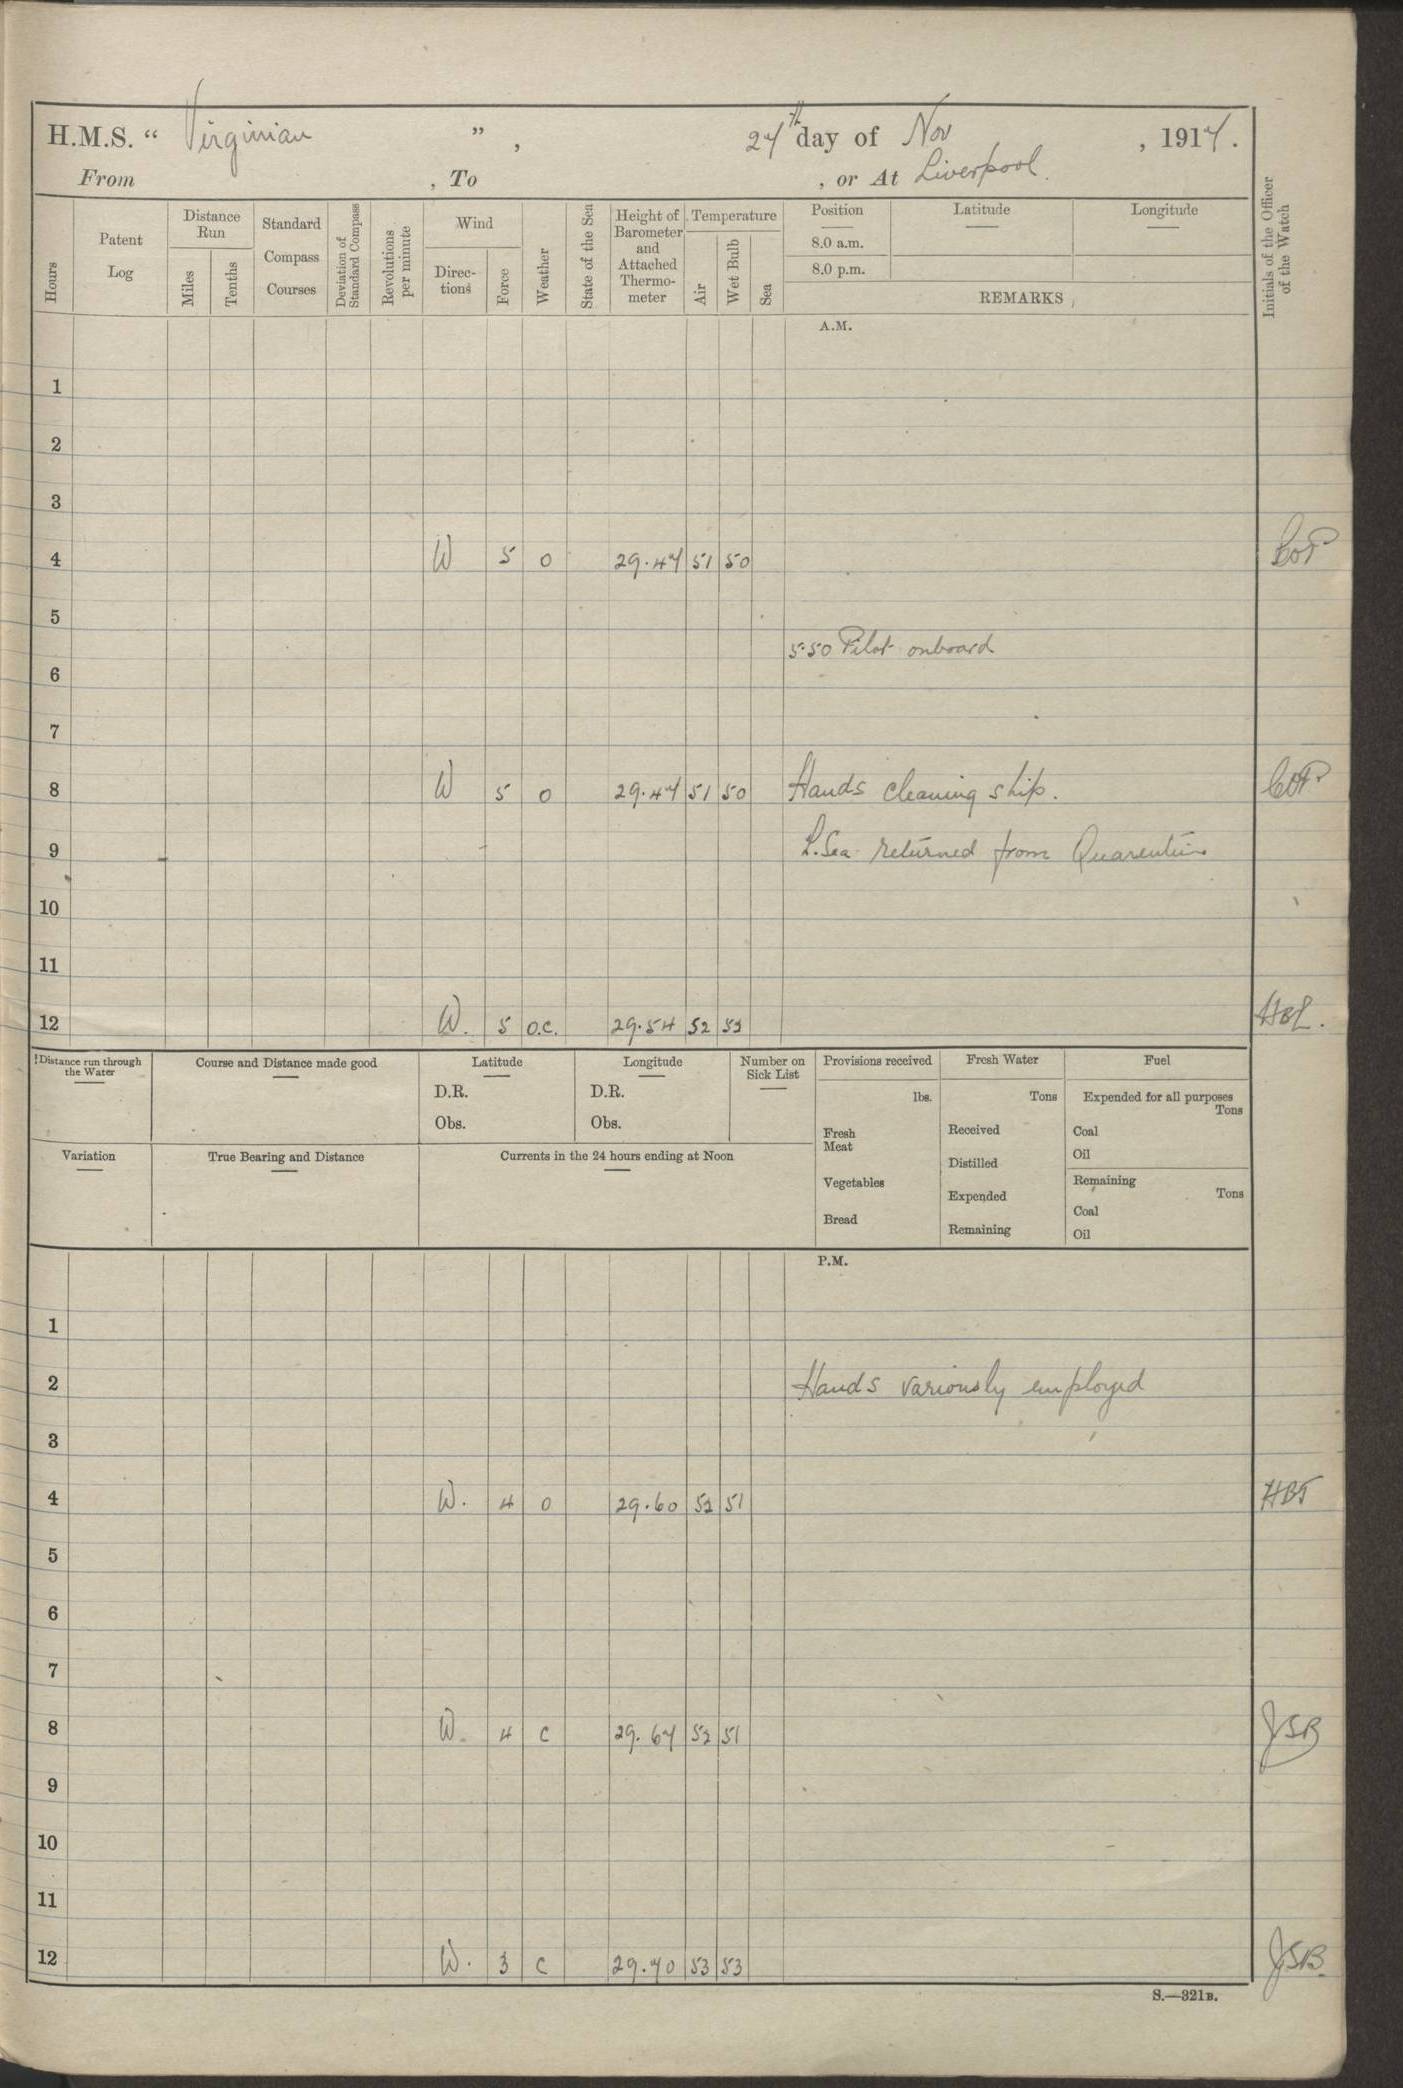 H.M.S. “ Virginian ”, 27th day of Nov , 1917.
From , To , or At Liverpool.
Hours
Patent Log
Distance Run
Miles
Tenths
Standard Compass Courses
Deviation of Standard Compass
Revolutions per minute
Wind
Direc-tions
Force
Weather
State of the Sea
Height of Barometer and Attached Thermo-meter
Temperature
Air
Wet Bulb
Sea
Position Latitude Longitude
8.0 a.m.
8.0 p.m.
REMARKS
Initials of the Officer of the Watch
A.M.
1
2
3
4 W 5 o 29.47 51 50
5
5.50 Pilot onboard
6
7
8 W 5 o 29.47 51 50 Hands cleaning ship.
9 L. Sea returned from Quarentine
10
11
12 W. 5 o.c. 29.54 52 52
Distance run through the Water
Course and Distance made good
Latitude
D.R.
Obs.
Longitude
D.R.
Obs.
Number on Sick List
Provisions received
lbs.
Fresh Meat
Vegetables
Bread
Fresh Water
Tons
Received
Distilled
Expended
Remaining
Fuel
Expended for all purposes
Tons
Coal
Oil
Remaining
Tons
Coal
Oil
Variation
True Bearing and Distance
Currents in the 24 hours ending at Noon
P.M.
1
2 Hands variously employed
3
4 W. 4 o 29.60 52 51 HBT
5
6
7
8 W. 4 c 29.67 52 51 JSB
9
10
11
12 W. 3 c 29.70 53 53 JSB
S.—321B.